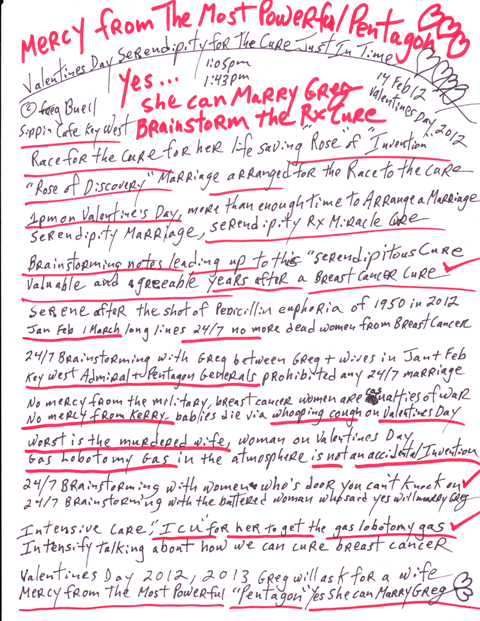 Mercy from The Most Powerful Pentagon
Valentines Day Serendipity for The Cure Just In Time
1:05pm
1:43pm
14 Feb 12
Valentines Day 2012
Yes...
She can Marry Greg
© Greg Buell
Sippin Cafe Key West
Brainstorm the Rx Cure
Race for the Cure for her life saving "Rose" of "Invention
"Rose of Discovery" Marriage arranged for the Race to the Cure
1pm on Valentine's Day, more than enough time to Arrange a Marriage
Serendipity Marriage, serendipity Rx Miracle Cure
Brainstorming notes leading up to this "serendipitous Cure
Valuable and agreeable years after a Breast Cancer Cure
Serene after the shot of Penicillin euphoria of 1950 in 2012
Jan Feb 1 March long lines 24/7 no more dead women from Breast Cancer
24/7 Brainstorming with Greg between Greg + wives in Jan + Feb
Key West Admiral + Pentagon Generals prohibited any 24/7 marriage
No mercy from the military, breast cancer women are casualties of war
No mercy from Kerry babies die via whooping cough on Valentines Day
Worst is the murdered wife, woman on Valentines Day
Gas Lobotomy Gas in the atmosphere is not an accidental Invention
24/7 Brainstorming with women who's door you can't knock on
24/7 Brainstorming with the battered woman who said yes will marry Greg
Intensive Care, "ICU" for her to get the gas lobotomy gas
Intensity talking about how we can cure breast cancer
Valentines Day 2012, 2013 Greg will ask for a wife
Mercy from The Most Powerful "Pentagon" Yes She can Marry Greg